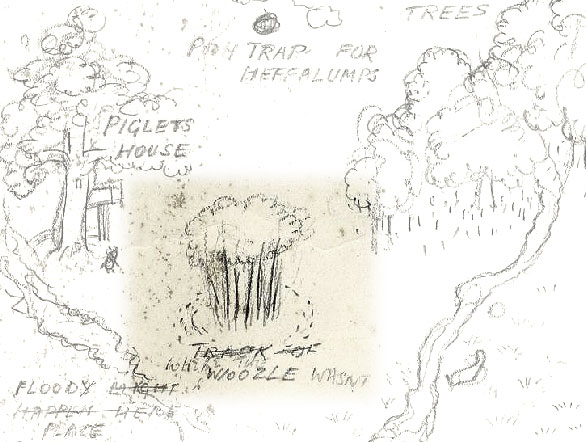 TREES
POOH TRAP FOR
HEFFALUMPS
PIGLETS
HOUSE
TRACK OF
WHERE
WOOZLE WASNT
FLOODY MIGHT
HAPPEN HERE
PLACE